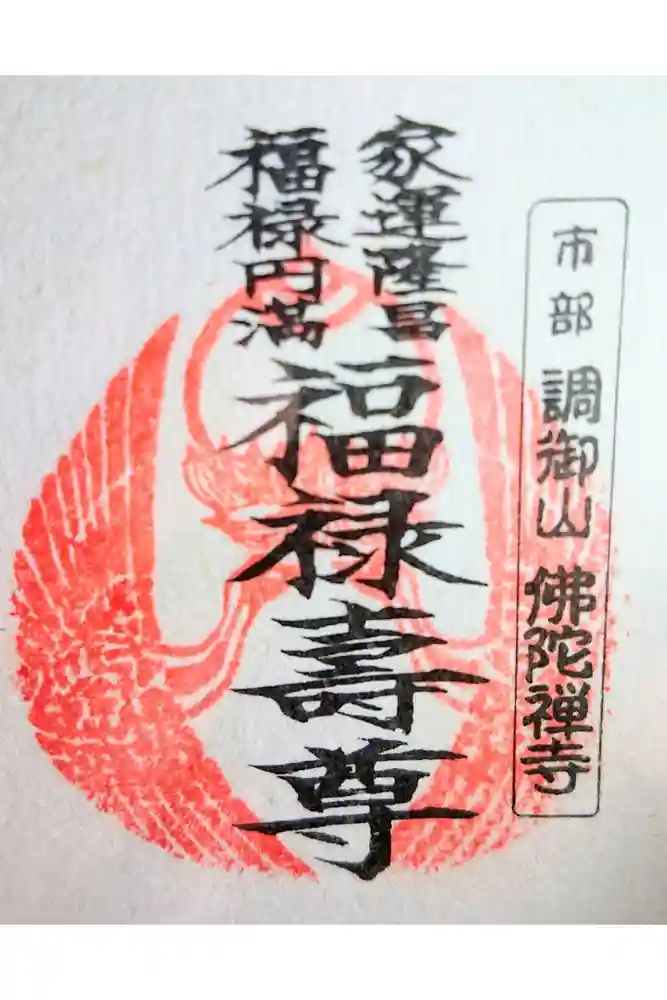 市部 調御山 佛陀禅寺
家運隆昌
福禄円満
福禄壽尊